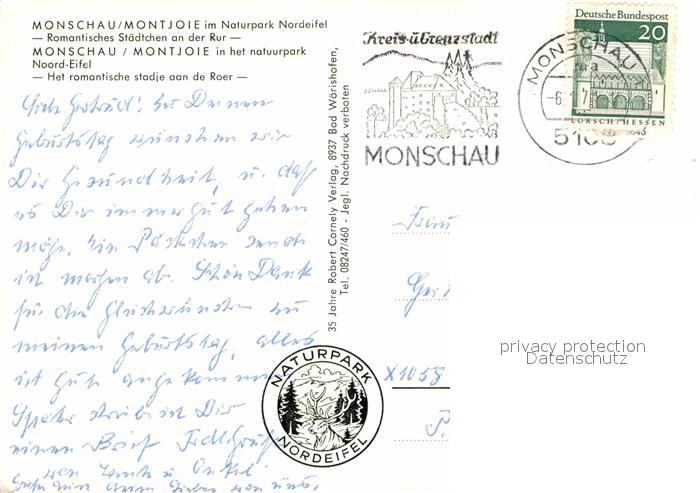 MONSCHAU/MONTJOIE im Naturpark Nordeifel
— Romantisches Städtchen an der Rur —
MONSCHAU / MONTJOIE in het natuurpark
Noord-Eifel
— Het romantische stadje aan de Roer —
Liebe Gertrud! Zu Deinem
Geburtstag wünschen wir
Dir Gesundheit, u. daß
es Dir immer gut gehen
möge. Ein Päckchen sende
ich morgen ab. Schön Dank
für die Glückwünsche zu
meinem Geburtstag, alles
ist gut angekommen
Später schreibe ich Dir
einen Brief Herzl. Grüße
von Tante u. Onkel
35 Jahre Robert Cornely Verlag, 8937 Bad Wörishofen,
Tel. 08247/460 - Jegl. Nachdruck verboten
Kreis-u Grenzstadt
MONSCHAU
MONSCHAU
-6.
5108
Deutsche Bundespost
20
LORSCH/HESSEN
Frau
Ger
X1058
NATURPARK
NORDEIFEL
privacy protection
Datenschutz